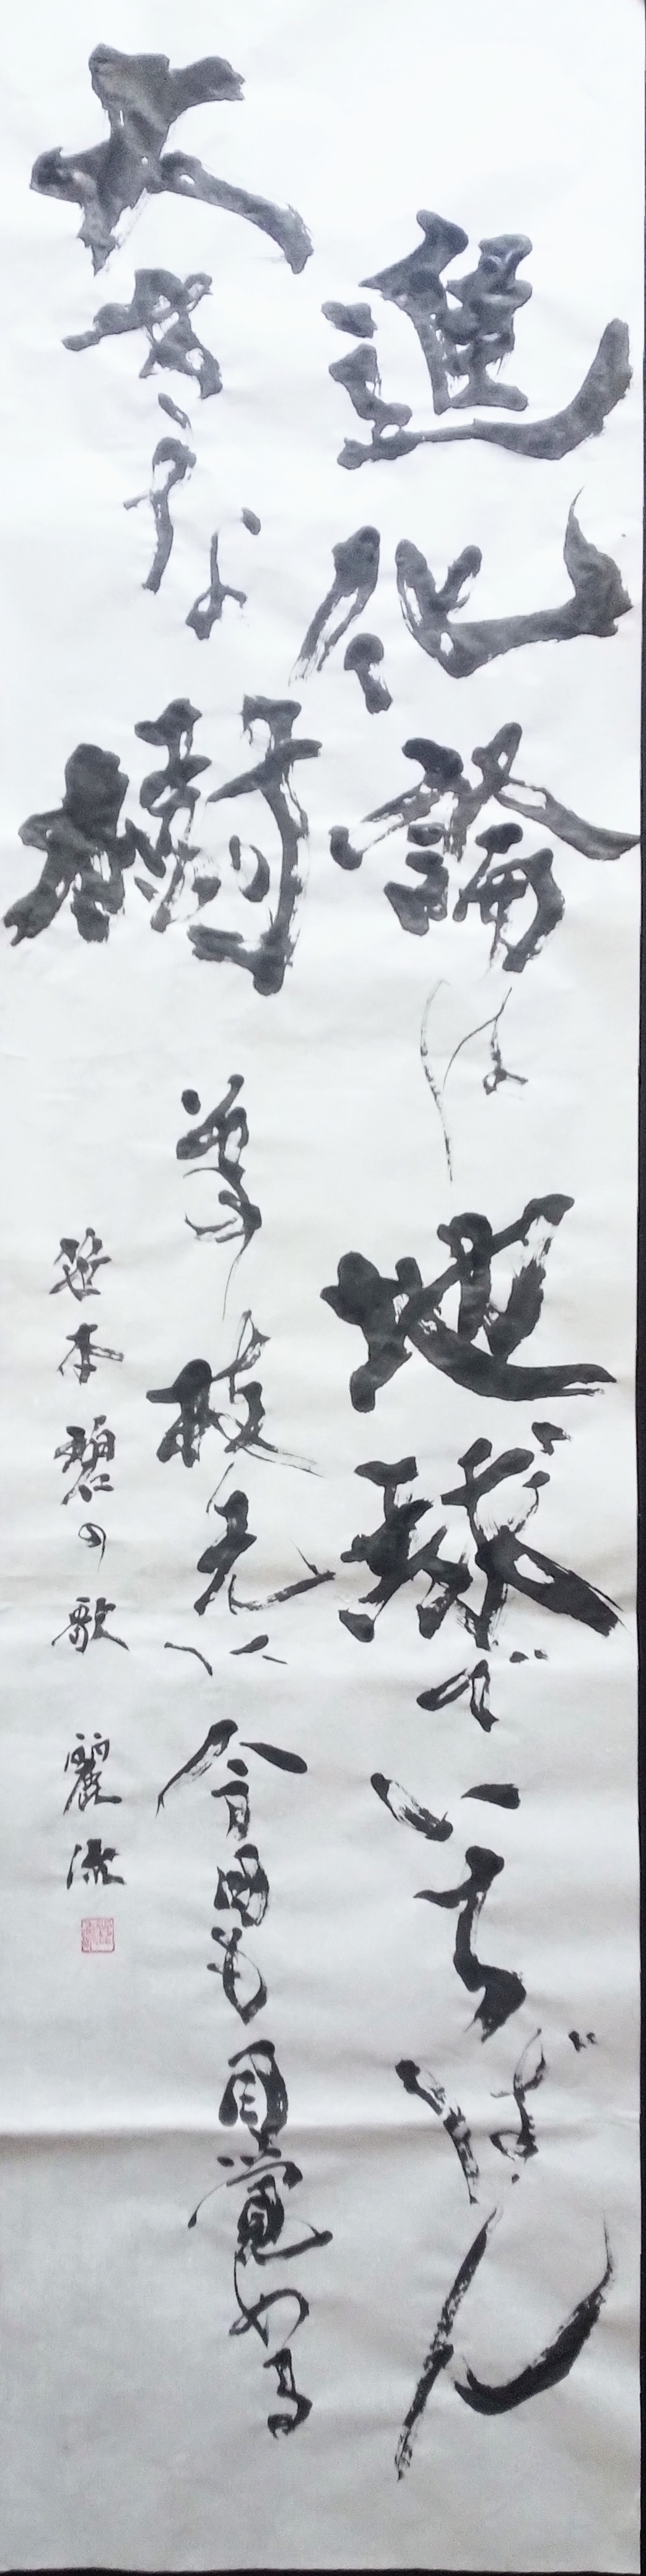 進化論は地球でいちばん
大きな樹その枝先に今日も目覚める
笹本碧の歌 麗流